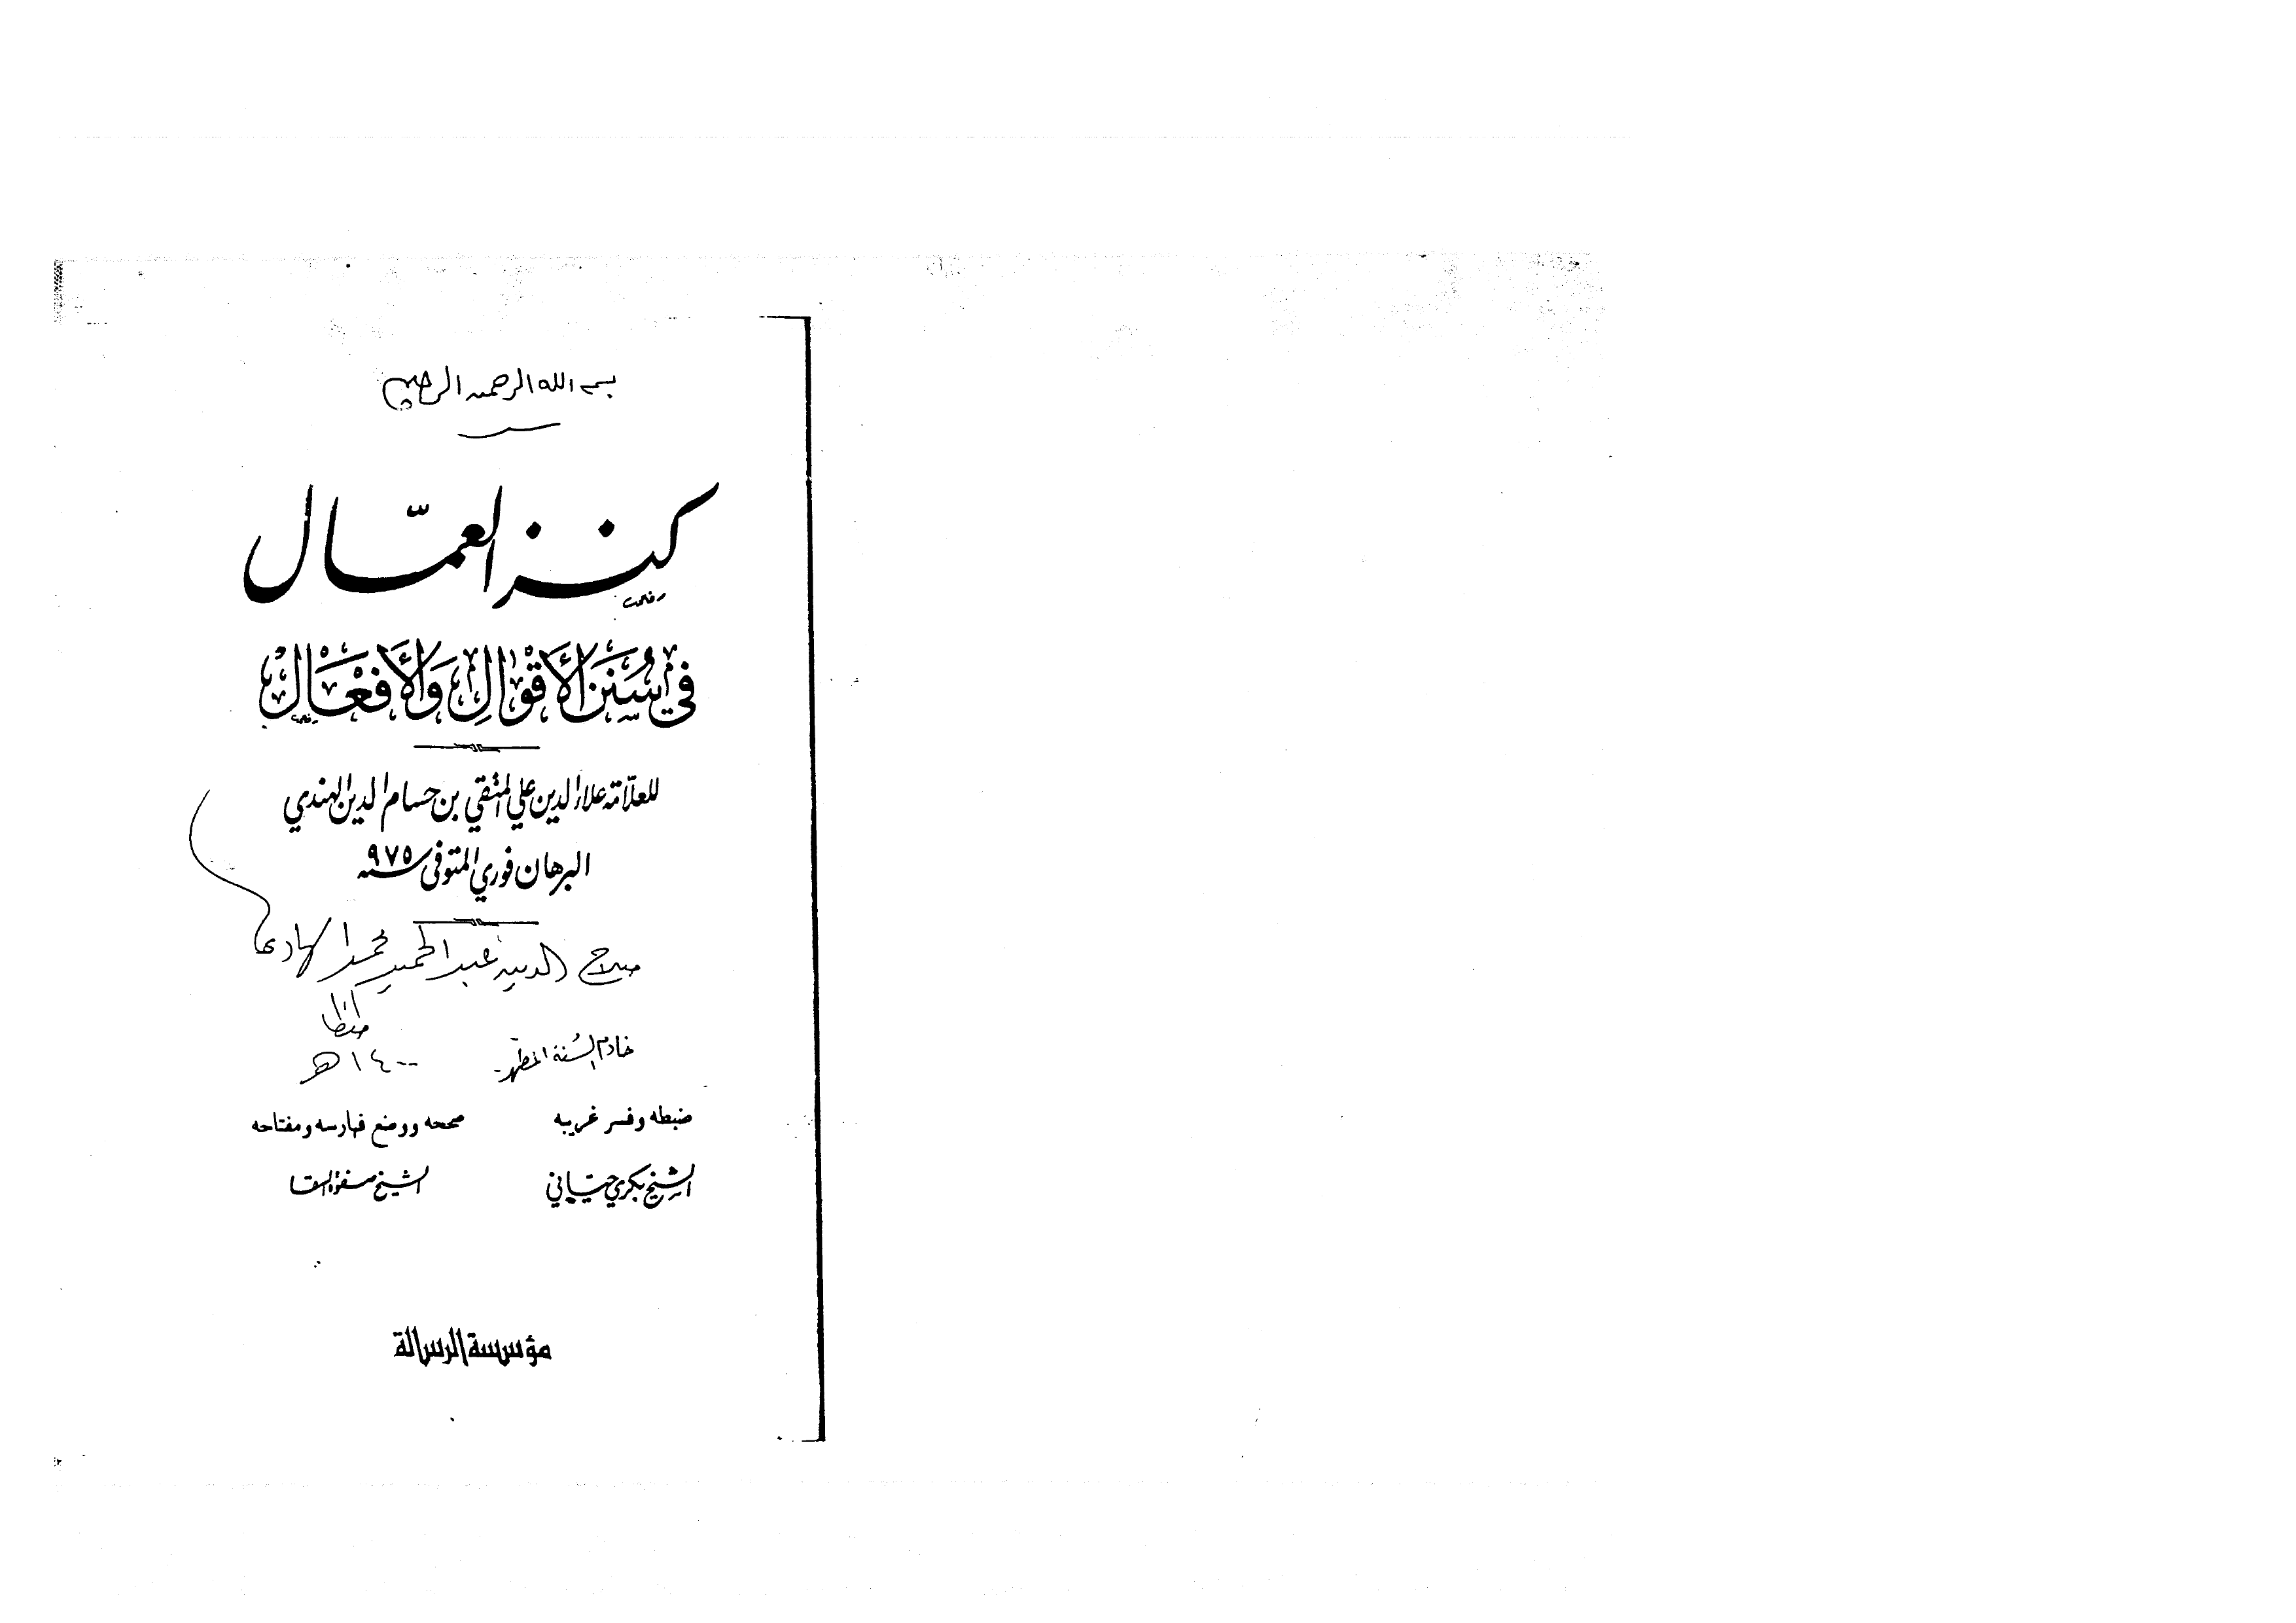 بسم الله الرحمن الرحيم
كنز العمّال
في سُنَنِ الأَقْوَالِ وَالأَفْعَالْ
للعلّامة علاء الدين علي المتقي بن حسام الدين الهندي
البرهان فوري المتوفى سنة ٩٧٥
صلاح الدين عبد الحميد محمد الهادي
طنطا
خادم السُنة المطهرة
١٤٠٠ هـ
ضبطه وفسر غريبه
صححه ووضع فهارسه ومفتاحه
الشيخ بكري حيّاني
الشيخ صفوة السقا
مؤسسة الرسالة